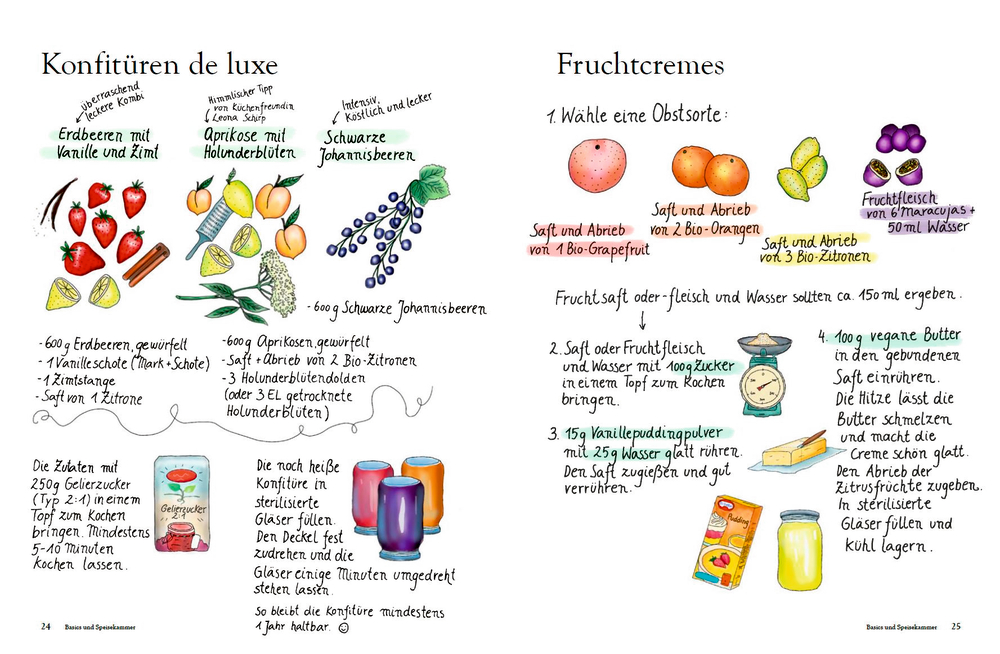 Konfitüren de luxe
überraschend
leckere Kombi
Erdbeeren mit
Vanille und Zimt
Himmlischer Tipp
von Küchenfreundin
Leona Schirp
Aprikose mit
Holunderblüten
Intensiv,
köstlich und lecker
Schwarze
Johannisbeeren
- 600 g Schwarze Johannisbeeren
- 600 g Erdbeeren, gewürfelt
- 1 Vanilleschote (Mark + Schote)
- 1 Zimtstange
- Saft von 1 Zitrone
- 600 g Aprikosen, gewürfelt
- Saft + Abrieb von 2 Bio-Zitronen
- 3 Holunderblütendolden
(oder 3 EL getrocknete
Holunderblüten)
Die Zutaten mit
250g Gelierzucker
(Typ 2:1) in einem
Topf zum Kochen
bringen. Mindestens
5-10 Minuten
kochen lassen.
Gelierzucker
2:1
Die noch heiße
Konfitüre in
sterilisierte
Gläser füllen.
Den Deckel fest
zudrehen und die
Gläser einige Minuten umgedreht
stehen lassen.
So bleibt die Konfitüre mindestens
1 Jahr haltbar. ☺
24 Basics und Speisekammer
Fruchtcremes
1. Wähle eine Obstsorte:
Saft und Abrieb
von 1 Bio-Grapefruit
Saft und Abrieb
von 2 Bio-Orangen
Saft und Abrieb
von 3 Bio-Zitronen
Fruchtfleisch
von 6 Maracujas +
50 ml Wasser
Fruchtsaft oder -fleisch und Wasser sollten ca. 150 ml ergeben.
2. Saft oder Fruchtfleisch
und Wasser mit 100g Zucker
in einem Topf zum Kochen
bringen.
3. 15g Vanillepuddingpulver
mit 25g Wasser glatt rühren.
Den Saft zugießen und gut
verrühren.
Pudding
4. 100g vegane Butter
in den gebundenen
Saft einrühren.
Die Hitze lässt die
Butter schmelzen
und macht die
Creme schön glatt.
Den Abrieb der
Zitrusfrüchte zugeben.
In sterilisierte
Gläser füllen und
kühl lagern.
Basics und Speisekammer 25